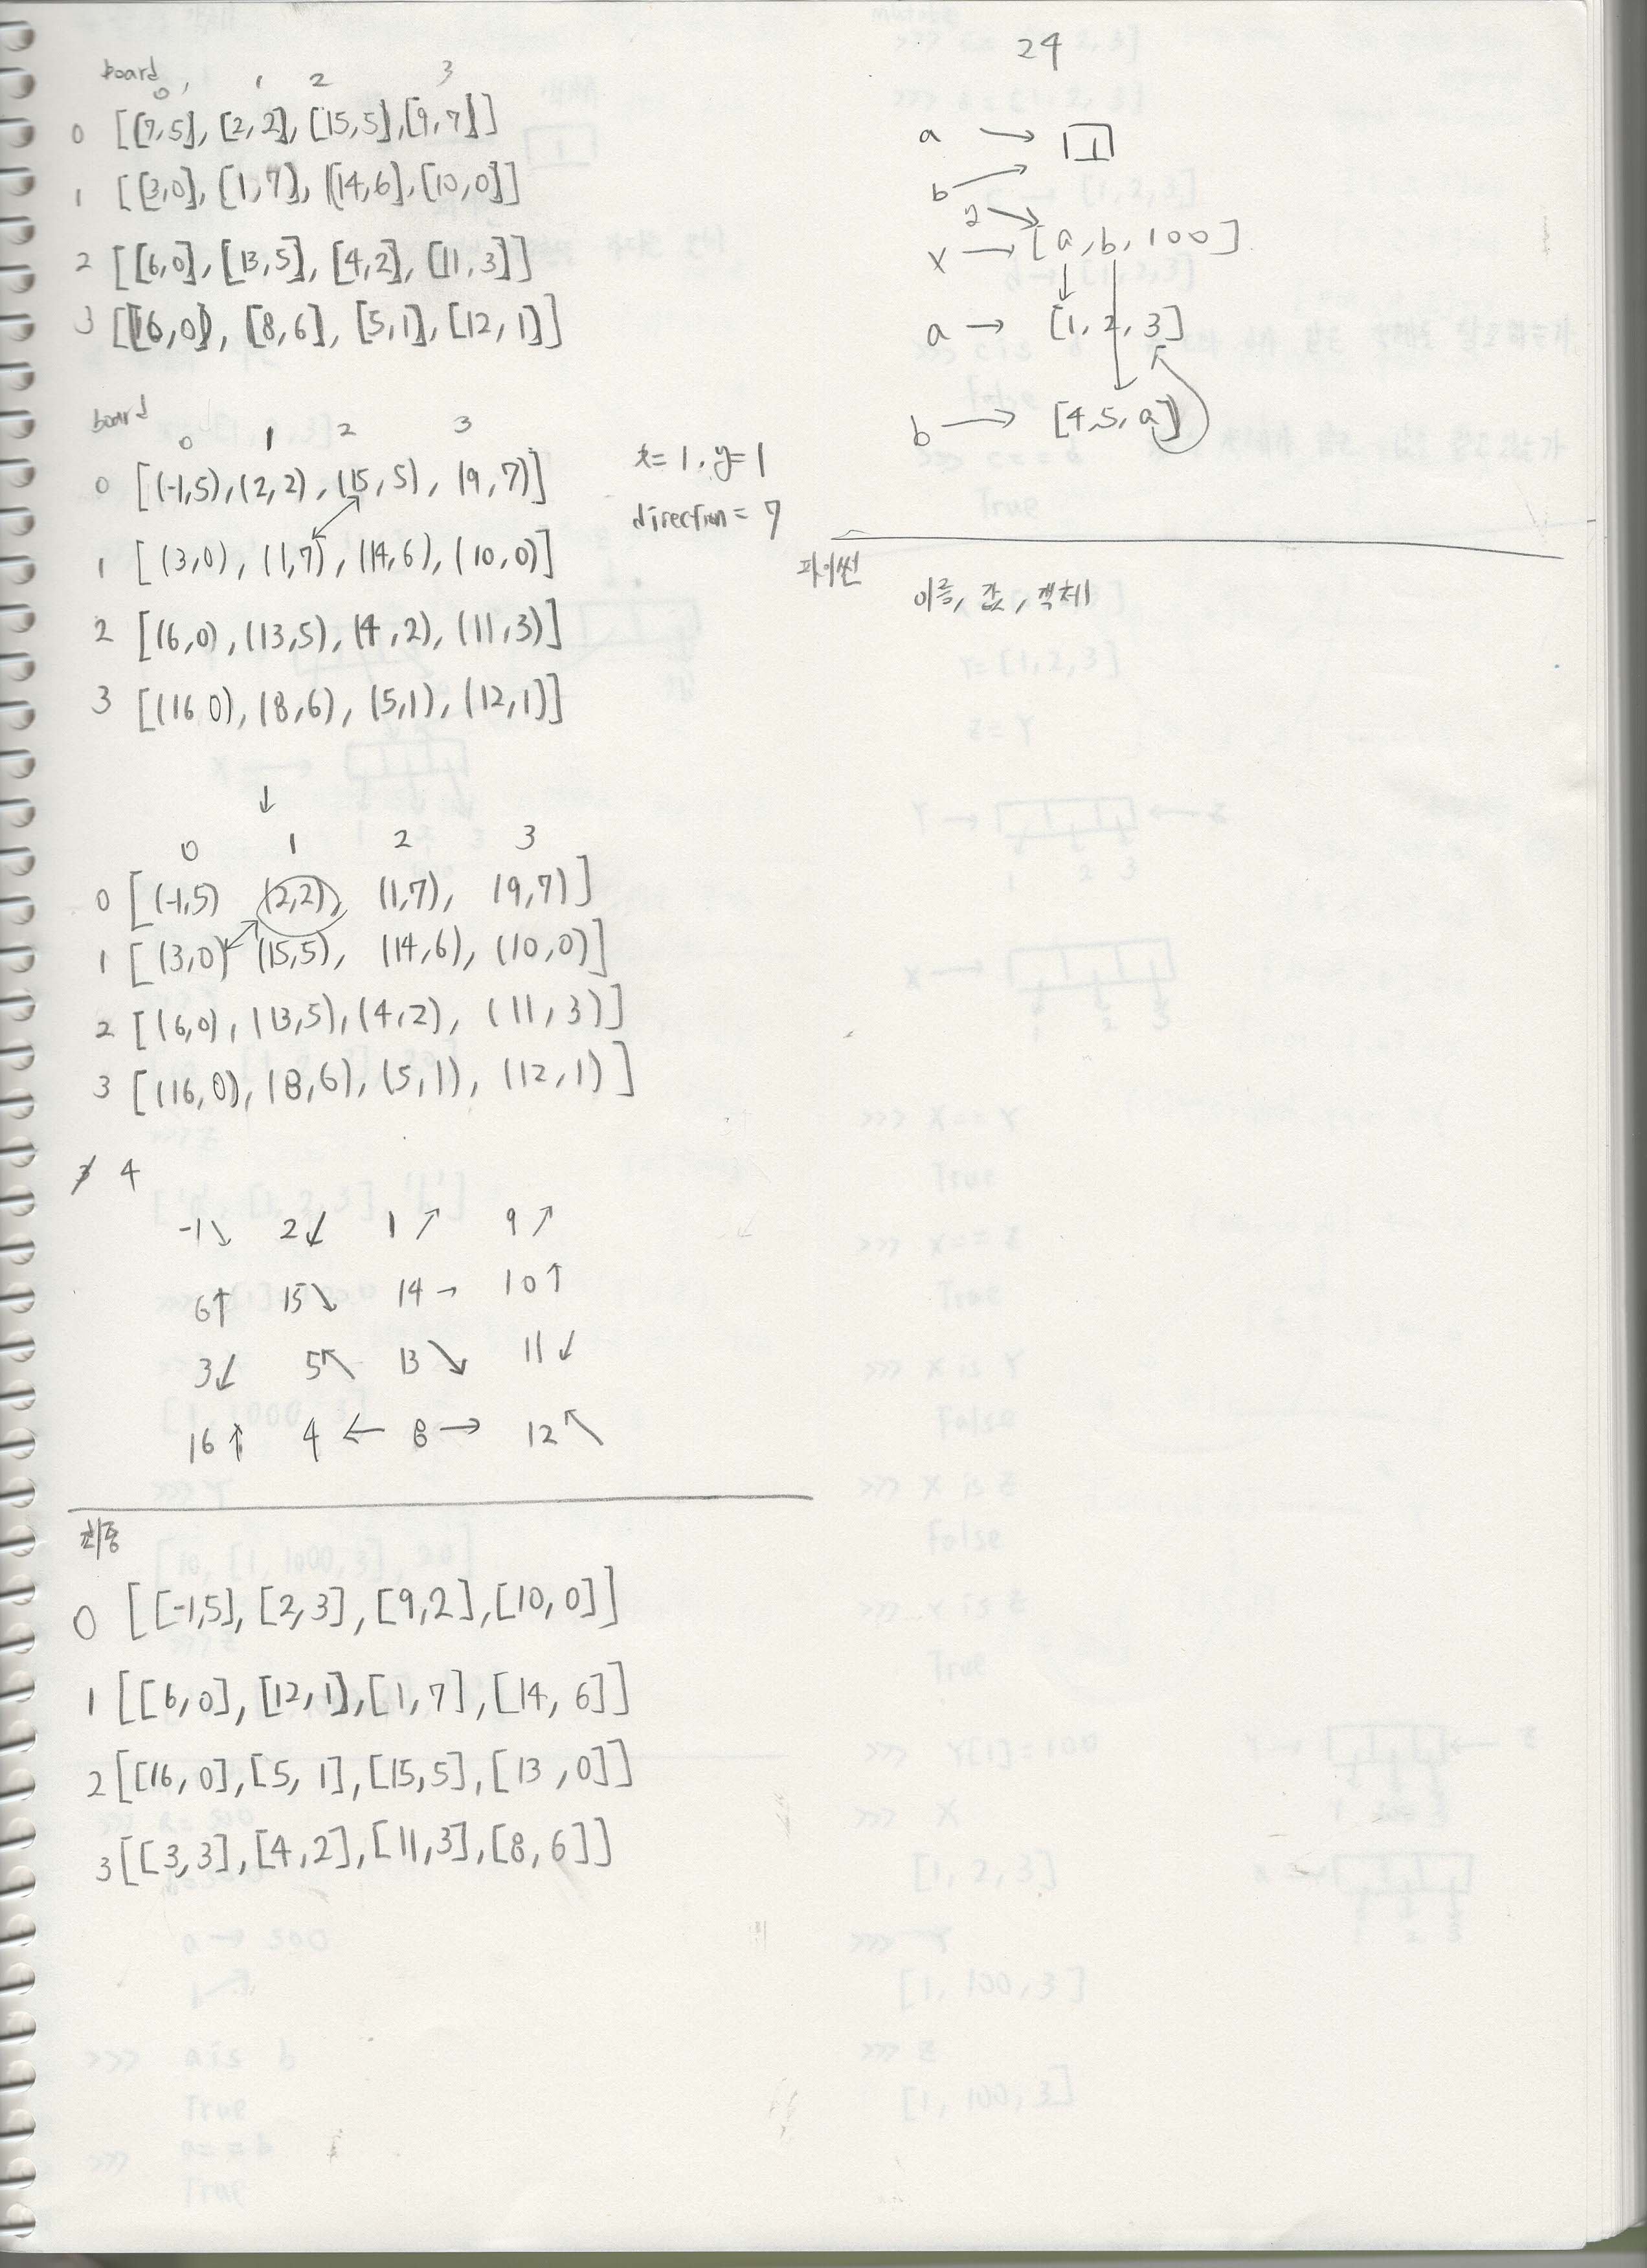 board
0 1 2 3
0 [[7,5], [2,2], [15,5], [9,7]]
1 [[3,0], [1,7], [14,6], [10,0]]
2 [[6,0], [13,5], [4,2], [11,3]]
3 [[16,0], [8,6], [5,1], [12,1]]
board
0 1 2 3
0 [(-1,5), (2,2), (15,5), (9,7)]
1 [(3,0), (1,7), (14,6), (10,0)]
2 [(6,0), (13,5), (4,2), (11,3)]
3 [(16 0), (8,6), (5,1), (12,1)]
x=1, y=1
direction = 7
↓
0 1 2 3
0 [(-1,5) (2,2), (1,7), (9,7)]
1 [(3,0) (15,5), (14,6), (10,0)]
2 [(6,0), (13,5), (4,2), (11,3)]
3 [(16,0), (8,6), (5,1), (12,1)]
4
-1↘ 2↙ 1↗ 9↗
6↑ 15↘ 14→ 10↑
3↙ 5↖ 13↘ 11↙
16↑ 4← 8→ 12↖
최종
0 [[-1,5], [2,3], [9,2], [10,0]]
1 [[6,0], [12,1], [1,7], [14,6]]
2 [[16,0], [5,1], [15,5], [13,0]]
3 [[3,3], [4,2], [11,3], [8,6]]
24
a → 1
b
x → [a, b, 100]
a → [1, 2, 3]
b → [4,5,a]
파이썬
이름, 값, 객체